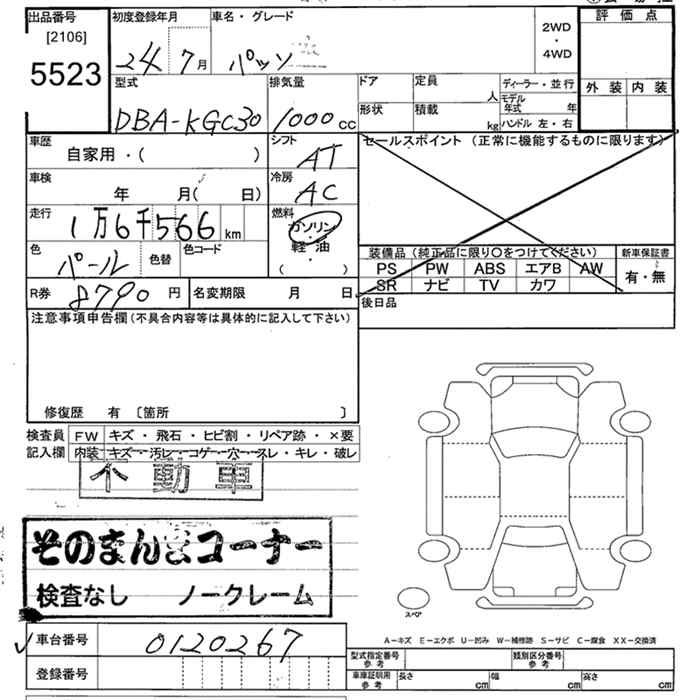 出品番号 初度登録年月 車名・グレード 評価点
[2106]
5523
24 7月 パッソ
2WD
・
4WD
外装 内装
型式 排気量 ドア 定員 人 ディーラー・並行
モデル年式 年
DBA-KGC30 1000cc 形状 積載 kg ハンドル 左・右
車歴 シフト セールスポイント (正常に機能するものに限ります)
自家用・( ) AT
車検 冷房
年 月( 日) AC
走行 燃料
1万6千566km ガソリン
・
軽油
( )
色 色替 色コード
パール
装備品 (純正品に限り〇をつけてください) 新車保証書
PS PW ABS エアB AW 有・無
SR ナビ TV カワ
R券 8790円 名変期限 月 日
後日品
注意事項申告欄(不具合内容等は具体的に記入して下さい)
修復歴 有 〔箇所 〕
検査員 FW キズ・飛石・ヒビ割・リペア跡・×要
記入欄 内装 キズ・汚レ・コゲ・穴・スレ・キレ・破レ
不動車
そのまんまコーナー
検査なし ノークレーム
スペア
A－キズ E－エクボ U－凹み W－補修跡 S－サビ C－腐食 XX－交換済
車台番号 0120267
登録番号
型式指定番号 参考 類別区分番号 参考
車庫証明用 参考 長さ cm 幅 cm 高さ cm